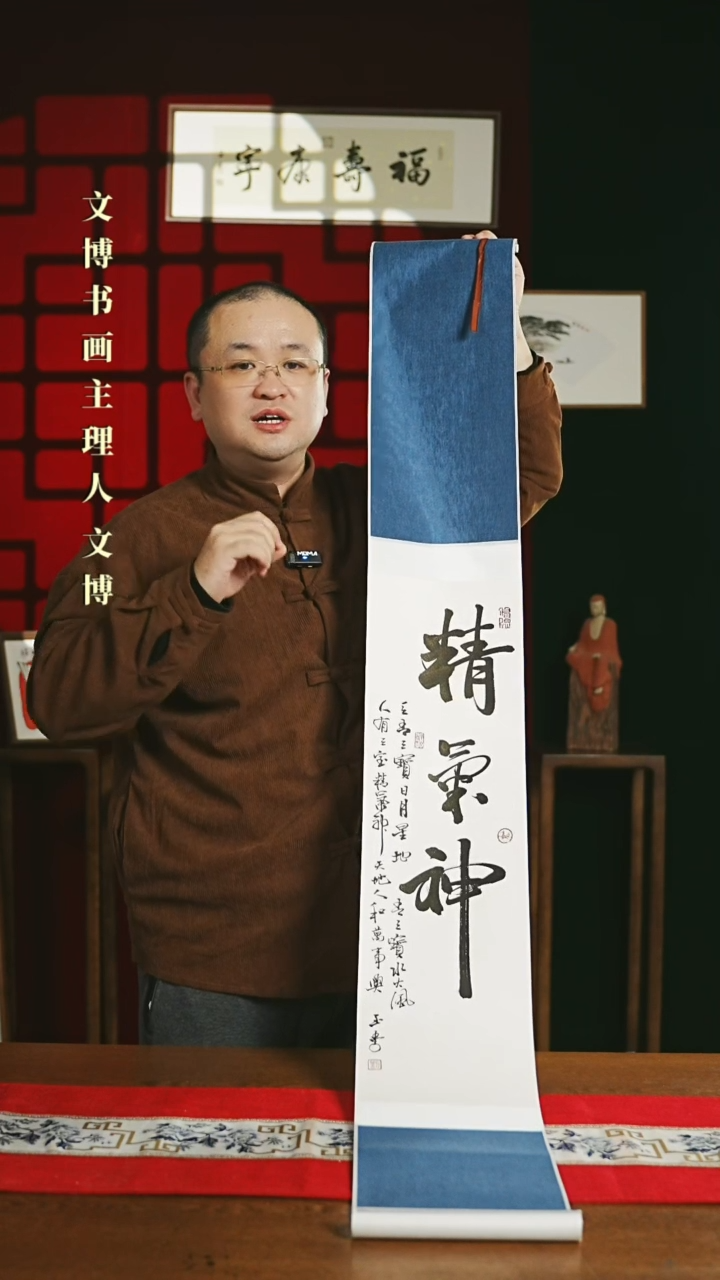 福壽康宁
文博书画主理人文博
MOMA
精氣神
天有三寶日月星地有三寶水火風
人有三宝精氣神天地人和萬事興